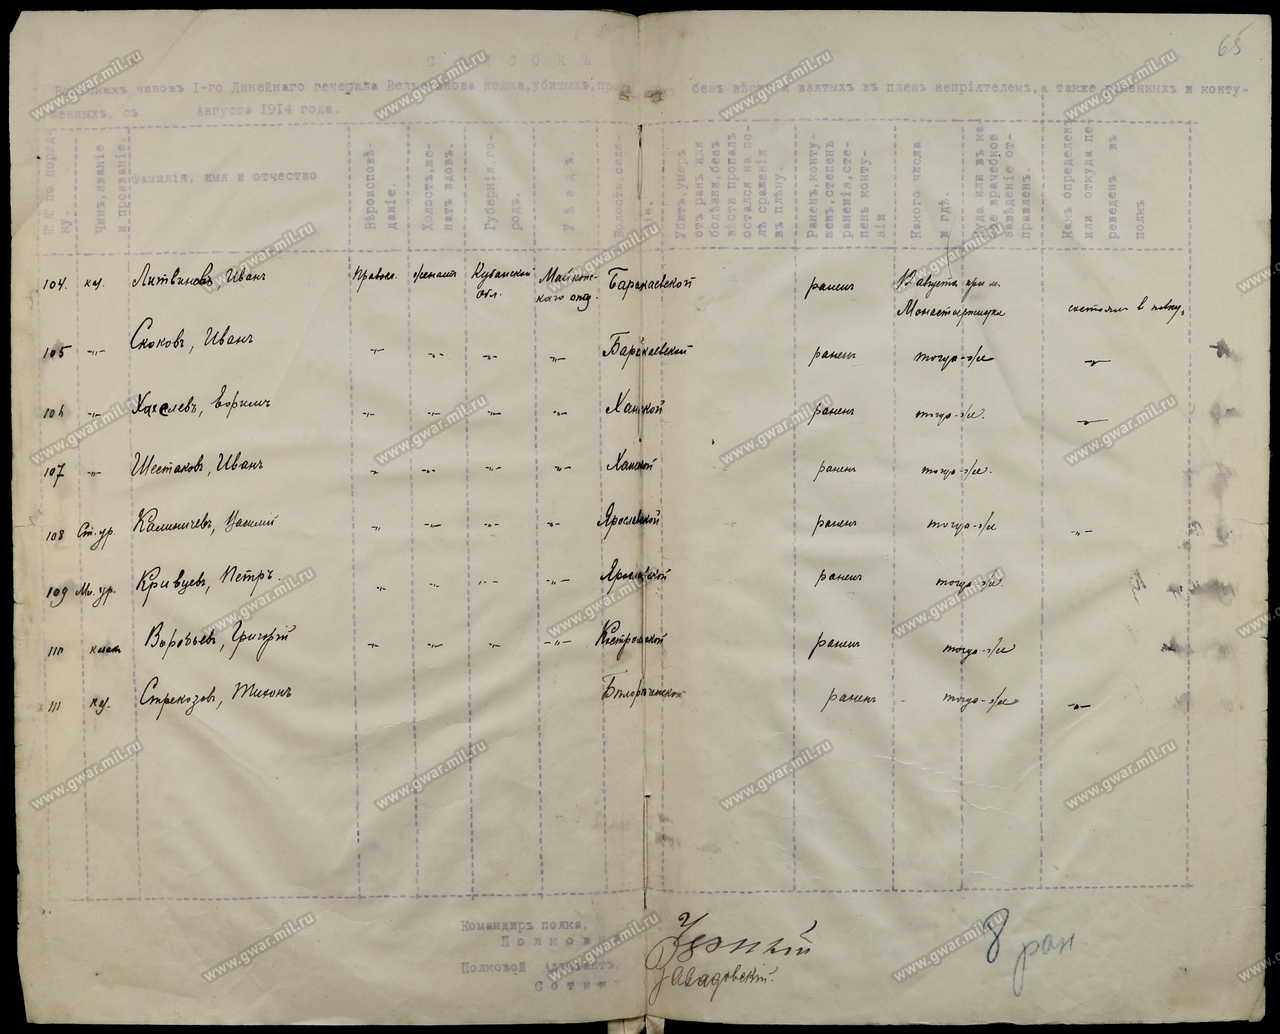 65
С П И С О К Ъ
чиновъ I-го Линейнаго генерала Вельяминова полка, убитыхъ, безъ вѣсти взятыхъ въ плѣнъ непріятелемъ, а также раненныхъ и конту-
женныхъ, съ Августа 1914 года.
№№ по порядку.
Чинъ, званіе и прозваніе.
Фамилія, имя и отчество
Вѣроисповѣданіе.
Холостъ, женатъ вдовъ.
Губернія, городъ.
Уѣздъ.
Волость, селеніе.
Убитъ, умеръ отъ ранъ или болѣзни, безъ вѣсти пропалъ остался на полѣ сраженія въ плѣну.
Раненъ, контуженъ, степень раненія, степень контузіи
Какого числа и гдѣ.
Куда или въ какое врачебное заведеніе отправленъ.
Какъ опредѣленъ или откуда переведенъ въ полкъ
104. каз. Литвиновъ, Иванъ Правосл. женатъ Кубанской обл. Майкопскаго отд. Баракаевской раненъ августа при м. Монастержиска состоялъ в полку.
105 -"- Скоковъ, Иванъ -"- -"- -"- -"- Баракаевской раненъ тогда-же -"-
106 -"- -"- -"- -"- -"- Ханской раненъ тогда-же. -"-
107 -"- Шестаковъ, Иванъ -"- -"- -"- -"- Ханской раненъ тогда-же.
108 Ст. ур. Калиничевъ, Василий -"- -"- -"- -"- Ярославской раненъ тогда-же -"-
109 Мл. ур. Кривцевъ, Петръ. -"- -"- -"- -"- Ярославской раненъ тогда-же.
110 казакъ Воробьевъ, Григорій -"- -"- -"- -"- Костромской раненъ тогда-же
111 каз. Стрекозовъ, Тихонъ Бѣлорѣчинской раненъ тогда-же -"-
Командиръ полка,
Полковн
Полковой Адъютантъ,
Сотн
Завадовскій.
8 ран
www.gwar.mil.ru